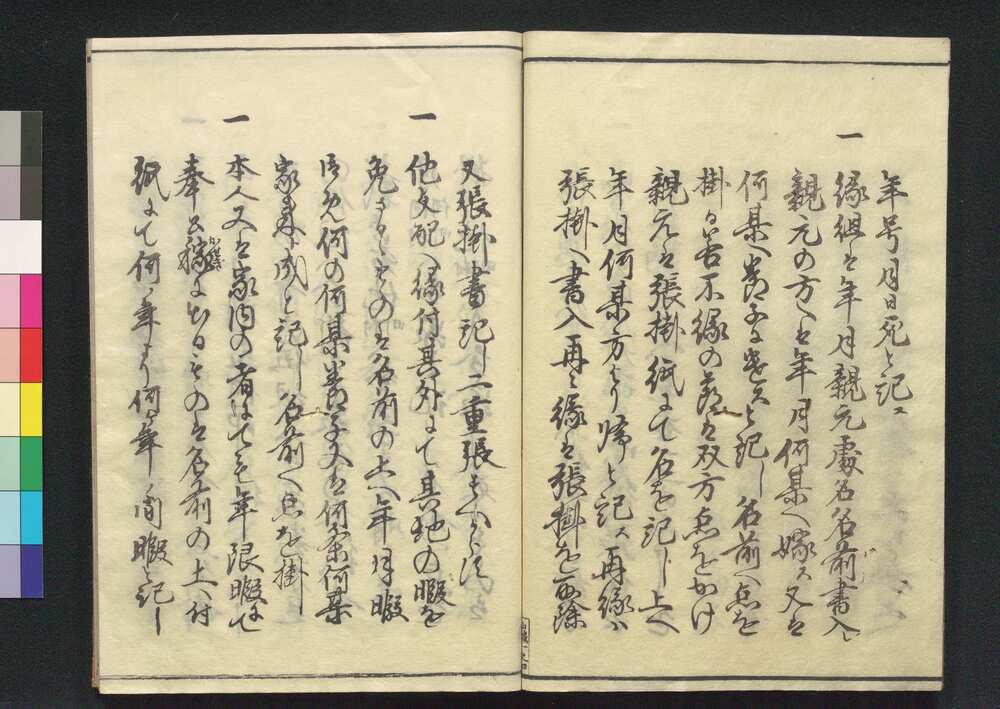 年号月日死と記ス
一
縁組者年月親元処名名前書入
親元の方へ者年月何某へ嫁ス又者
何某へ養子ニ遣スと記し名前へ点を
掛ケ若不縁の節者双方点をかけ
親元者張掛紙ニて名を記し上へ
年月何某方より帰と記ス再縁ハ
張掛へ書入再々縁者張掛を取除
又張掛書記し二重張すへからす
一
他支配へ縁付其外ニて其地の暇を
免さるゝものハ名前の上へ年月暇
何の何某養子又者何某
家来ニ成と記し名前へ点を掛
一
本人又者家内の者ニても年限暇ニて
奉公稼ニ出ルもの者名前の上へ付
紙ニて何年より何年ノ間暇と記し